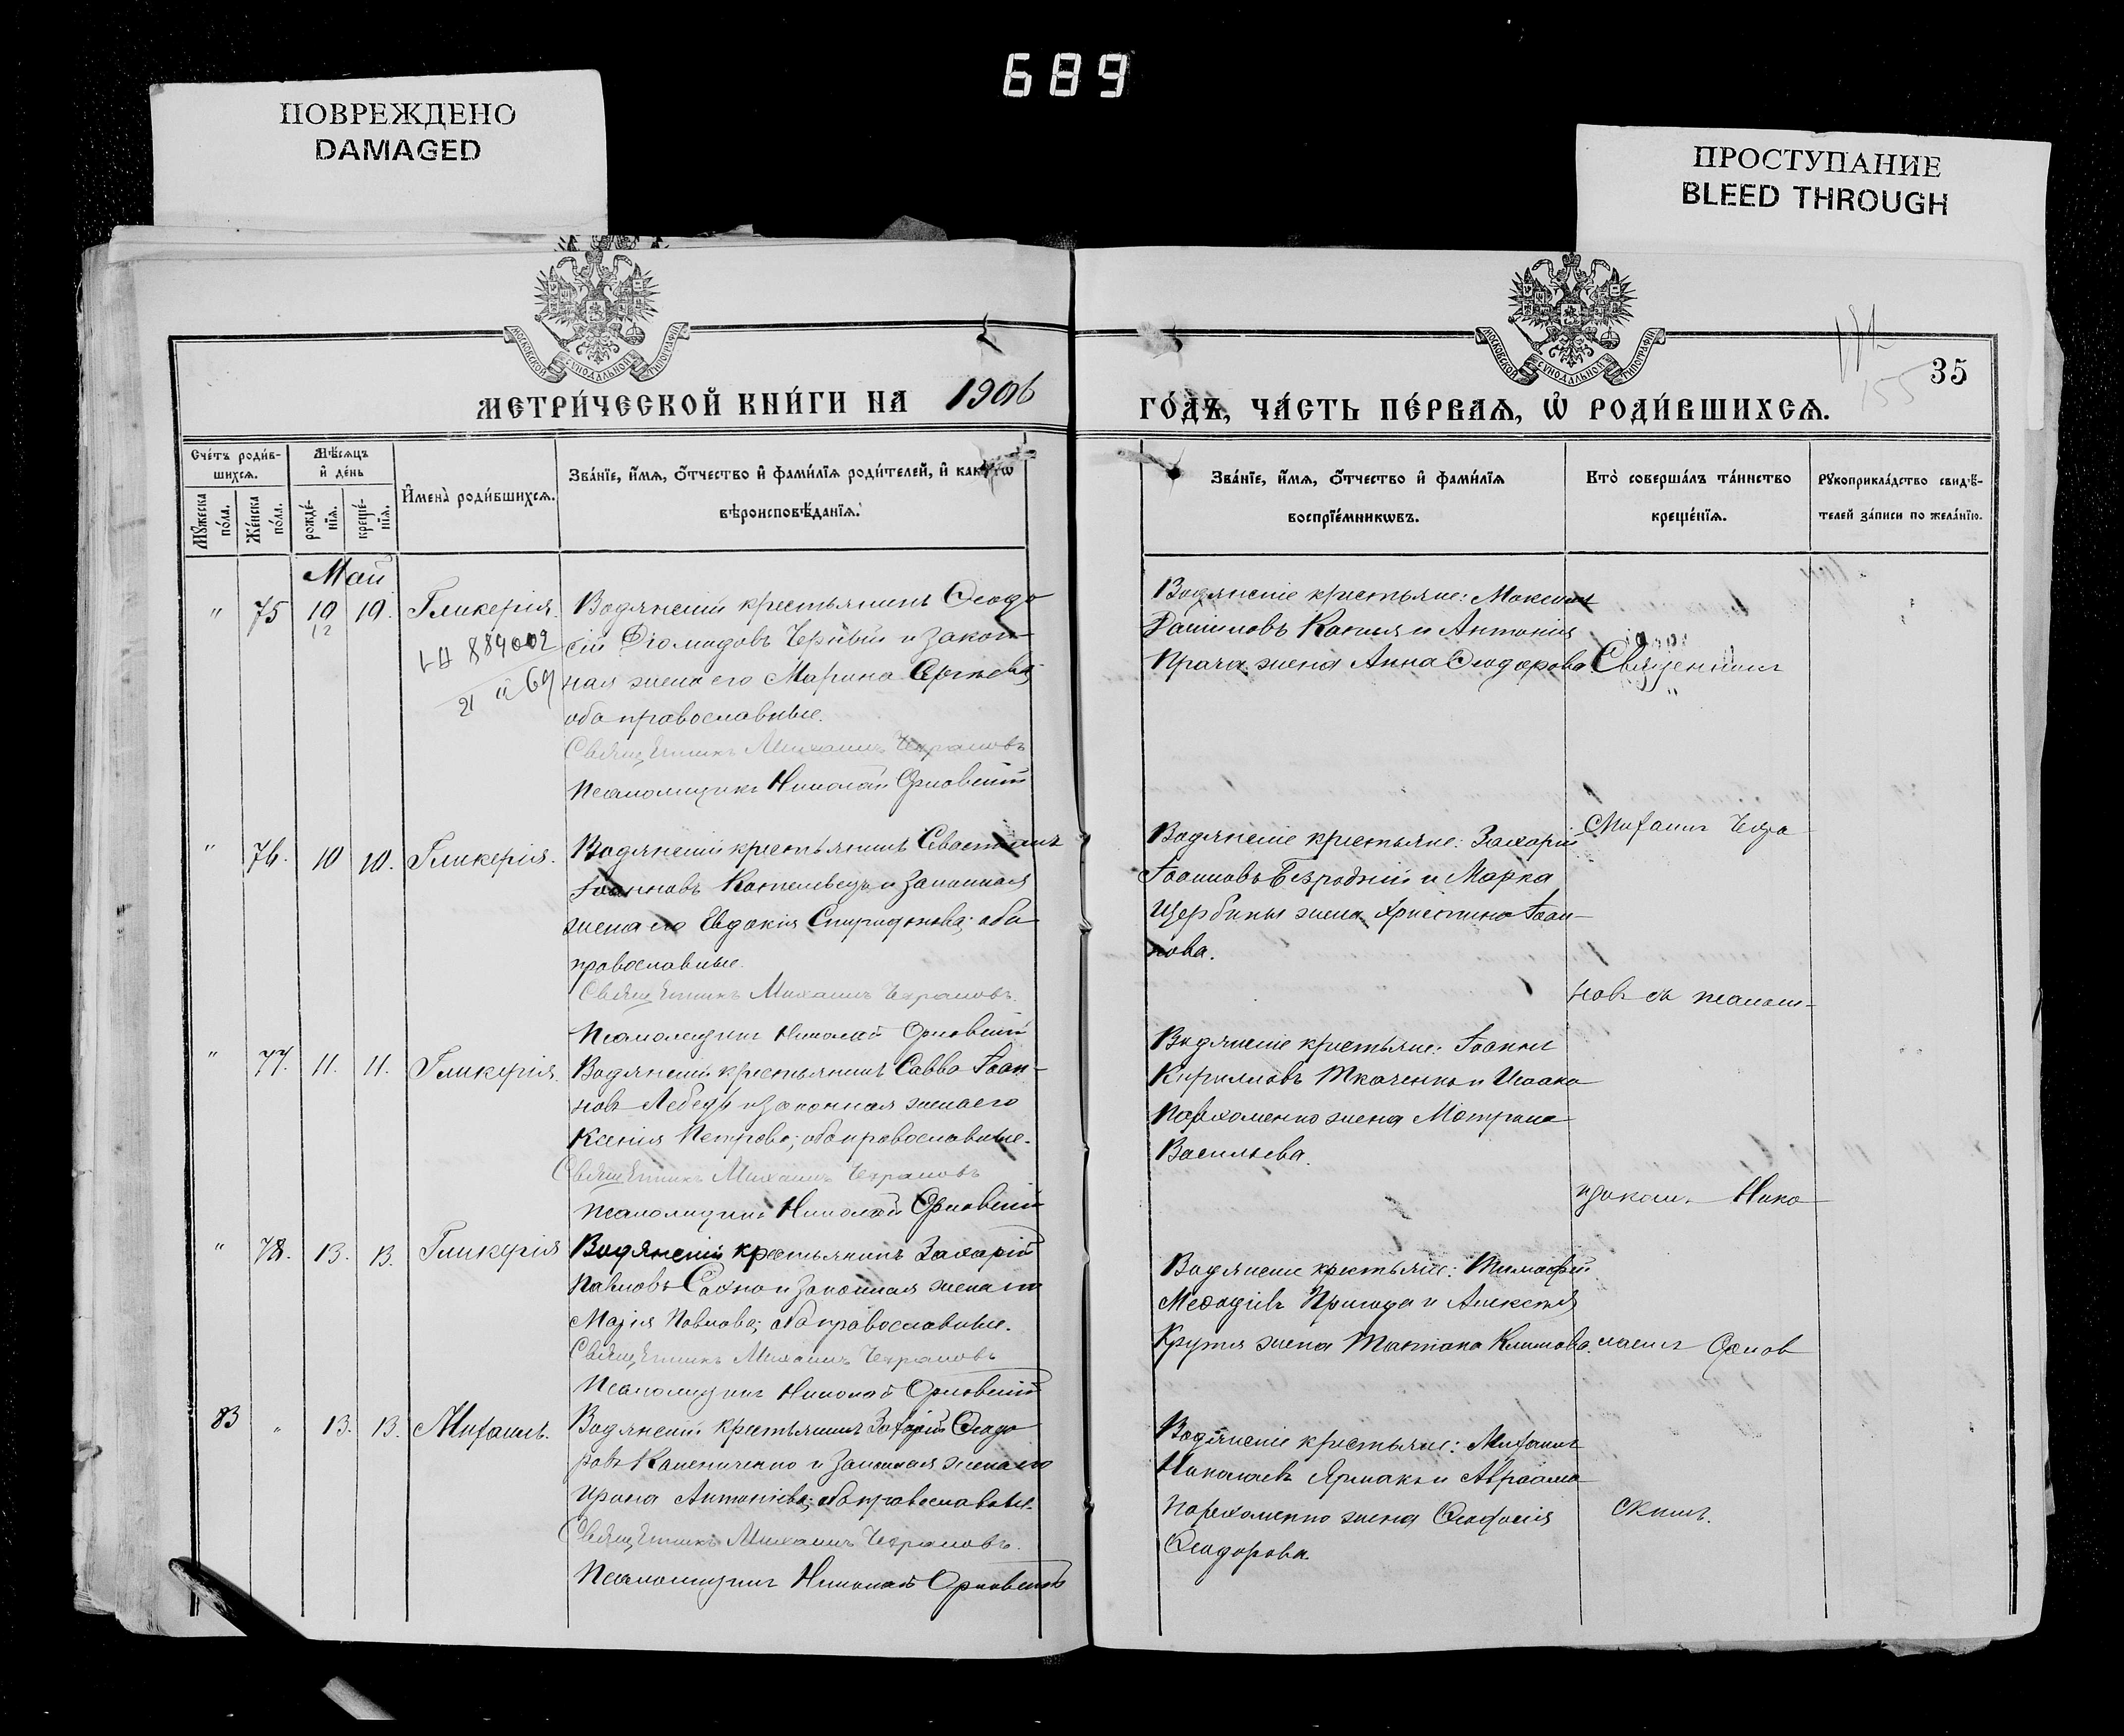 689
ПОВРЕЖДЕНО
DAMAGED
ПРОСТУПАНИЕ
BLEED THROUGH
МОСКОВСКОЙ СѴНОДАЛЬНОЙ ТИПОГРАФІИ
МОСКОВСКОЙ СѴНОДАЛЬНОЙ ТИПОГРАФІИ
35
155
МЕТРИ́ЧЕСКОЙ КНИ́ГИ НА 1906
ГО́ДЪ, ЧА́СТЬ ПЕ́РВАѦ, Ѡ҆ РОДИ́ВШИХСѦ.
Сче́тъ роди́в-
шихсѧ.
Мꙋжеска
по́ла.
Же́нска
по́ла.
Мѣ́сѧцъ
и҆ де́нь
рожде́-
нїѧ.
креще́-
нїѧ.
И҆мена̀ роди́вшихсѧ.
Зва́нїе, и҆́мѧ, ѻ҆́тчество и҆ фами́лїѧ роди́телей, и҆ како́гѡ
вѣроисповѣ́данїѧ.
Зва́нїе, и҆́мѧ, ѻ҆́тчество и҆ фами́лїѧ
воспрїе́мникѡвъ.
Кто̀ соверша́лъ та́инство
креще́нїѧ.
Рꙋкоприкла́дство свидѣ́-
телей за́писи по жела́нїю.
Май
" 75 10 10. Гликерія. Водянскій крестьянинъ Ѳеодо
12
сій Діомидовъ Черный и закон-
889002
ная жена его Марина Сергѣева;
21 69
оба православные.
Священникъ Михаилъ Чехрановъ
Псаломщикъ Николай Орловскій
Водянскіе крестьяне: Максимъ
Данииловъ Капля и Антонія
Прача жена Анна Ѳеодорова.
Священникъ
" 76. 10 10. Гликерія. Водянскій крестьянинъ Севастіанъ
Іоанновъ и законная
жена его Евдокія Спиридонова; оба
православные.
Священникъ Михаилъ Чехрановъ.
Псаломщикъ Николай Орловскій
Водянскіе крестьяне: Захарій
Іоанновъ Безродній и Марка
Щербины жена Христина Іоан-
нова.
Михаилъ Чехра
новъ съ псалом-
" 77. 11. 11. Гликерія. Водянскій крестьянинъ Савва Іоан-
новъ Лебедь и законная жена его
Ксенія Петрова; оба православные.
Священникъ Михаилъ Чехрановъ
Псаломщикъ Николай Орловскій
Водянскіе крестьяне: Іоаннъ
Кирилловъ Ткаченко и Исаака
Пархоменко жена Матрона
Васильева.
щикомъ Нико
" 78. 13. 13. Гликерія Водянскій крестьянинъ Захарій
Павловъ Сахно и законная жена его
Марія Павлова; оба православные.
Священникъ Михаилъ Чехрановъ
Псаломщикъ Николай Орловскій
Водянскіе крестьяне: Тимоѳей
Меѳодіевъ Пригода и Алексѣя
Крутя жена Татіана Климова.
лаемъ Орлов
83 " 13. 13. Михаилъ. Водянскій крестьянинъ Захарій Ѳеодо
ровъ Каменниченко и законная жена его
Ирина Антоніева; оба православные.
Священникъ Михаилъ Чехрановъ.
Псаломщикъ Николай Орловскій
Водянскіе крестьяне: Михаилъ
Николаевъ Ярмакъ и Авраама
Пархоменко жена Ѳеодосія
Ѳеодорова.
скимъ.